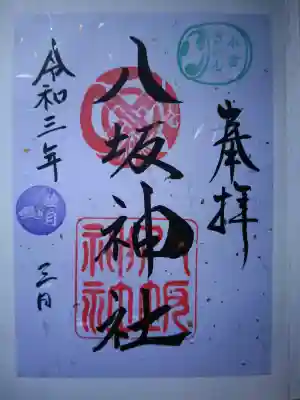 奉拝
八坂神社
八坂神社
令和三年
三日